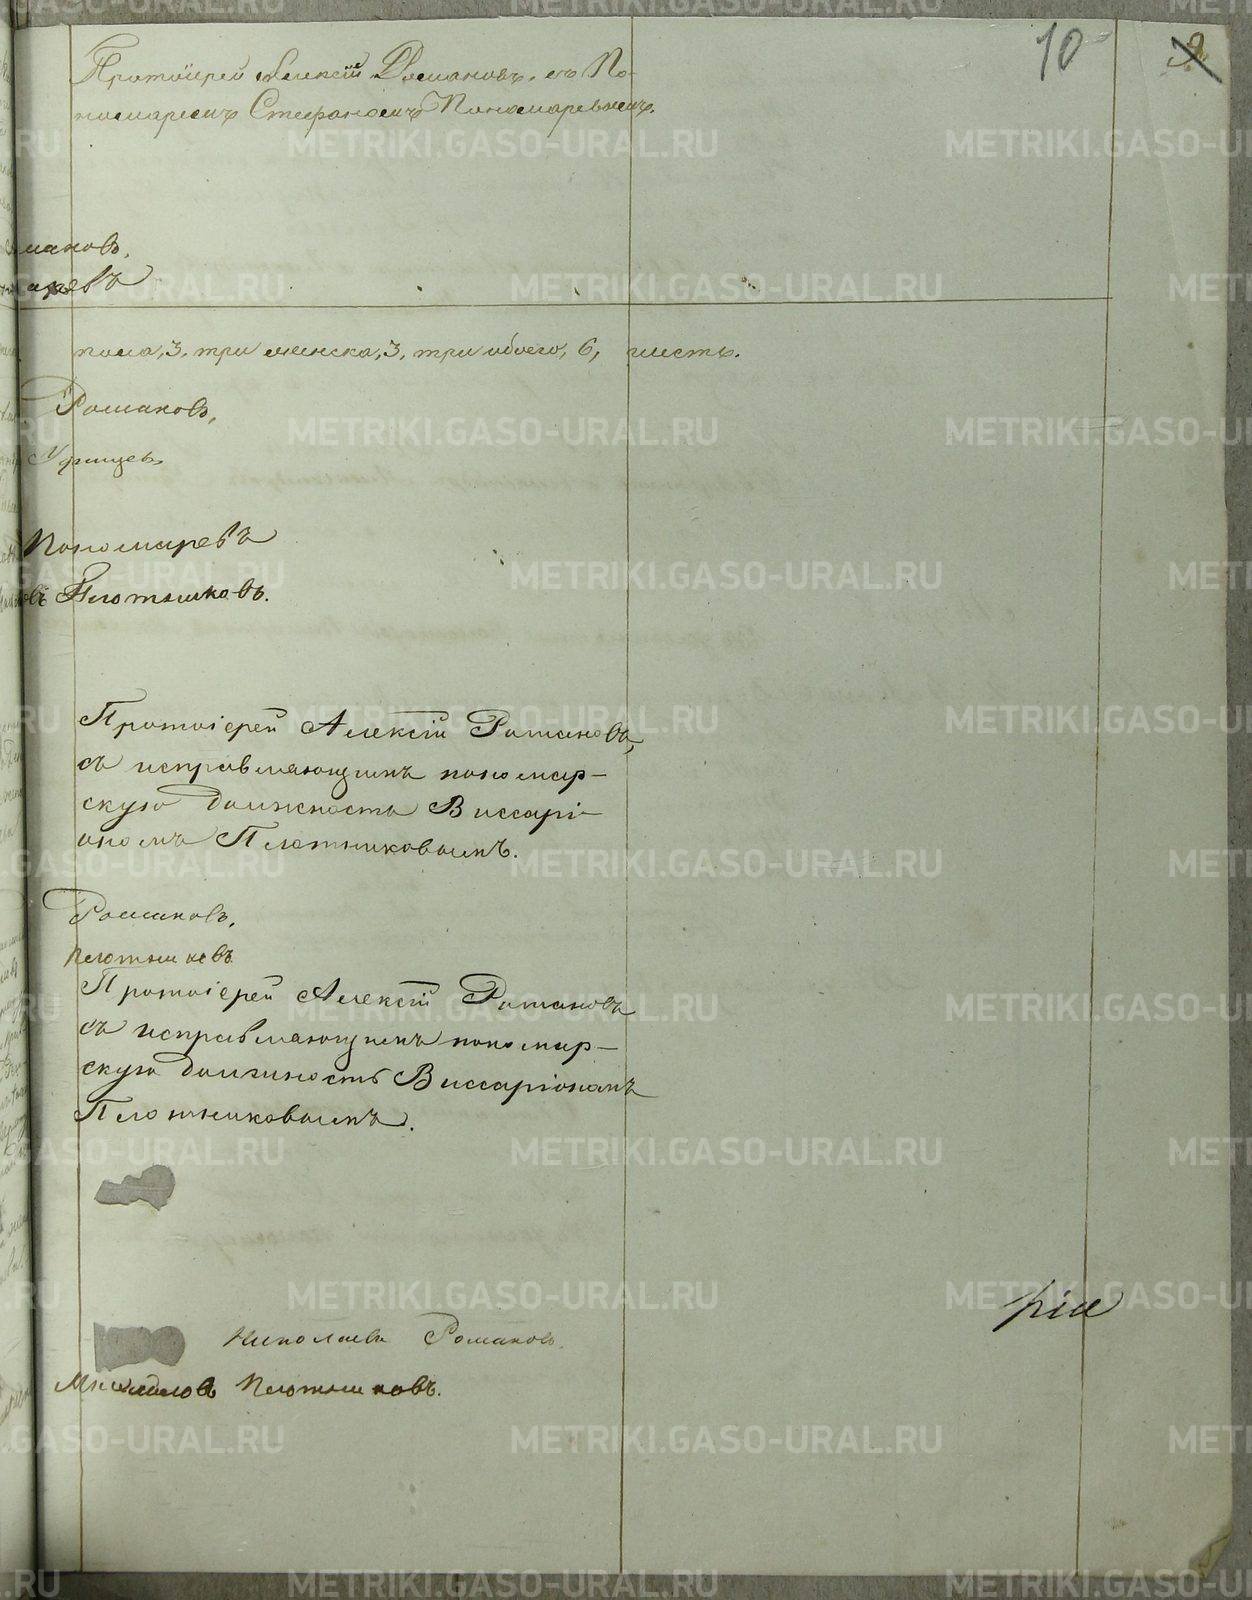 10
9
Протоіерей Алексій Романовъ, съ По-
номаремъ Стефаномъ Пономаревымъ.
мановъ.
аревъ
пола, 3, три женска, 3, три обоего, 6, шесть.
Романовъ,
Пономаревъ
Плотниковъ.
Протоіерей Алексій Романовъ,
съ исправляющимъ пономар-
скую должность Виссарі-
ономъ Плотниковымъ.
Романовъ.
Плотниковъ
Протоіерей Алексій Романовъ
съ исправляющимъ пономар-
скую должность Виссаріономъ
Плотниковымъ.
ріи
Николаевъ Романовъ.
Михайловъ Плотниковъ.
METRIKI.GASO-URAL.RU